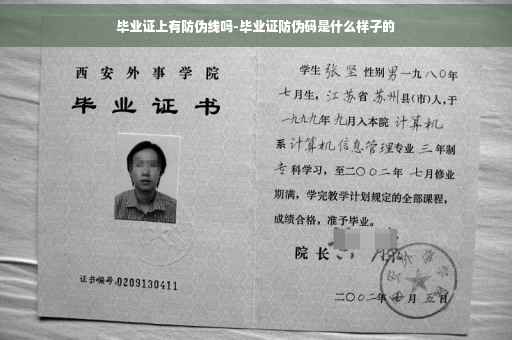 毕业证上有防伪线吗-毕业证防伪码是什么样子的
西安外事学院
毕业证书
证书编号:0209130411
学生 张坚 性别 男 一九八〇年
七月生, 江苏省 苏州县(市)人,于
一九九九年 九月入本院 计算机
系 计算机信息管理专业 三 年制
专科学习,至二〇〇二年 七月修业
期满,学完教学计划规定的全部课程,
成绩合格,准予毕业。
院长
二〇〇二年 七 月 五 日